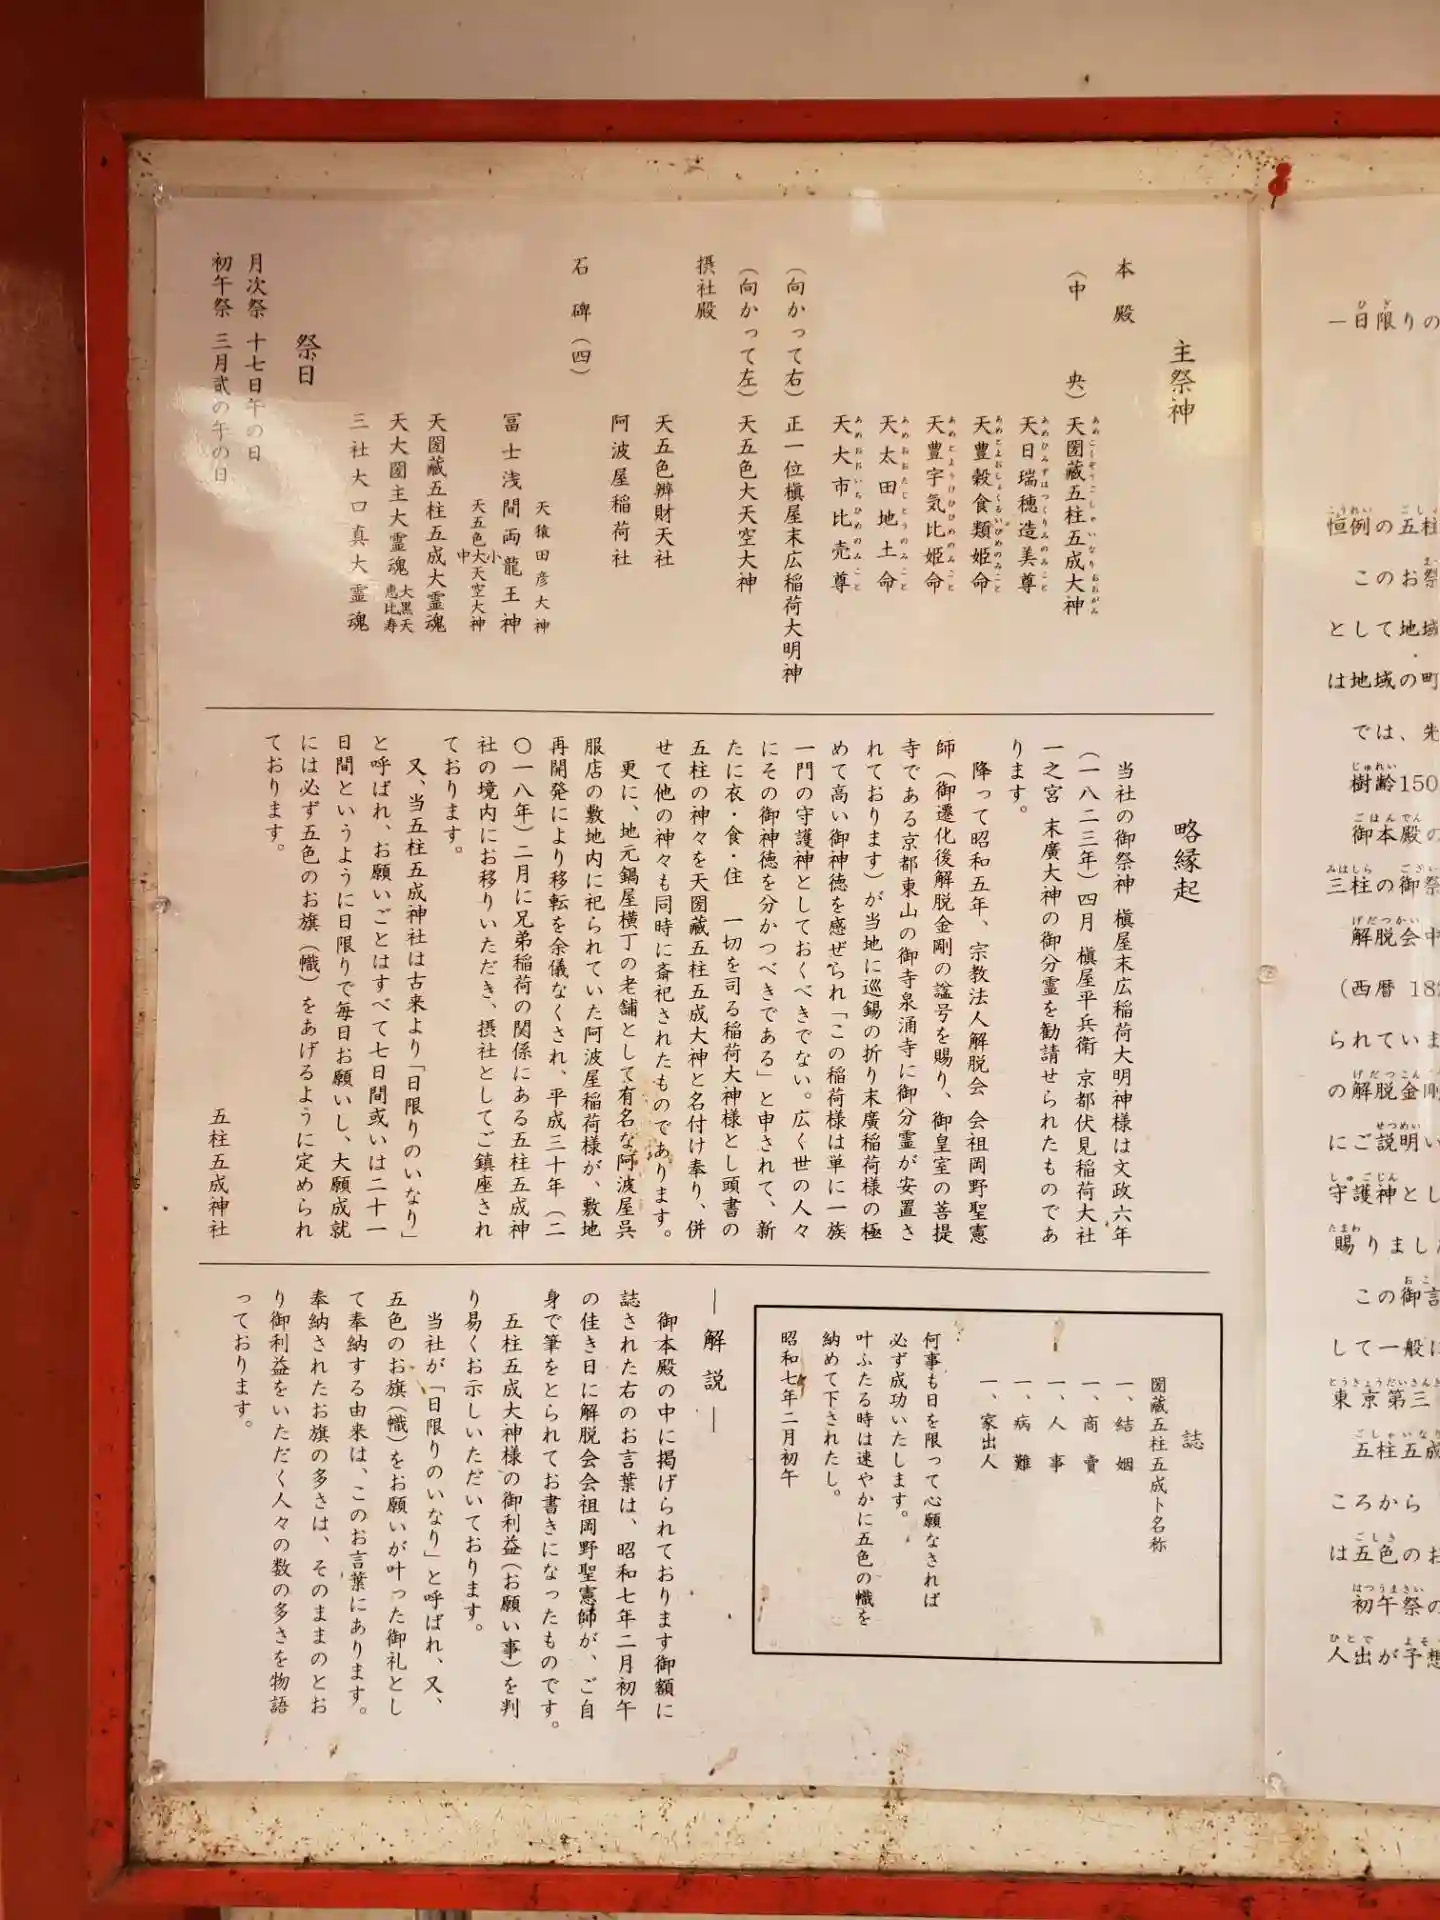 主祭神
本殿
(中央) 天圀藏五柱五成大神
天日瑞穂造美尊
天豊穀食類姫命
天豊宇気比姫命
天太田地土命
天大市比売尊
(向かって右) 正一位槇屋末広稲荷大明神
(向かって左) 天五色大天空大神
摂社殿
天五色辨財天社
阿波屋稲荷社
石碑(四)
天猿田彦大神
冨士浅間両龍王神 小
天五色大天空大神 中
天圀藏五柱五成大霊魂
天大圀主大霊魂 大黒天 恵比寿
三社大口真大霊魂
祭日
月次祭 十七日午の日
初午祭 三月弐の午の日
略縁起
当社の御祭神 槇屋末広稲荷大明神様は文政六年
(一八二三年)四月 槇屋平兵衛 京都伏見稲荷大社
一之宮 末廣大神の御分霊を勧請せられたものであ
ります。
降って昭和五年、宗教法人解脱会 会祖岡野聖憲
師(御遷化後解脱金剛の諡号を賜り、御皇室の菩提
寺である京都東山の御寺泉涌寺に御分霊が安置さ
れております)が当地に巡錫の折り末廣稲荷様の極
めて高い御神徳を感ぜられ「この稲荷様は単に一族
一門の守護神としておくべきでない。広く世の人々
にその御神徳を分かつべきである」と申されて、新
たに衣・食・住 一切を司る稲荷大神様とし頭書の
五柱の神々を天圀藏五柱五成大神と名付け奉り、併
せて他の神々も同時に斎祀されたものであります。
更に、地元鍋屋横丁の老舗として有名な阿波屋呉
服店の敷地内に祀られていた阿波屋稲荷様が、敷地
再開発により移転を余儀なくされ、平成三十年(二
〇一八年)二月に兄弟稲荷の関係にある五柱五成神
社の境内にお移りいただき、摂社としてご鎮座され
ております。
又、当五柱五成神社は古来より「日限りのいなり」
と呼ばれ、お願いごとはすべて七日間或いは二十一
日間というように日限りで毎日お願いし、大願成就
には必ず五色のお旗(幟)をあげるように定められ
ております。
五柱五成神社
誌
圀藏五柱五成ト名称
一、結姻
一、商賣
一、人事
一、病難
一、家出人
何事も日を限って心願なされば
必ず成功いたします。
叶ふたる時は速やかに五色の幟を
納めて下されたし。
昭和七年二月初午
―解説―
御本殿の中に掲げられております御額に
誌された右のお言葉は、昭和七年二月初午
の佳き日に解脱会会祖岡野聖憲師が、ご自
身で筆をとられてお書きになったものです。
五柱五成大神様の御利益(お願い事)を判
り易くお示しいただいております。
当社が「日限りのいなり」と呼ばれ、又、
五色のお旗(幟)をお願いが叶った御礼とし
て奉納する由来は、このお言葉にあります。
奉納されたお旗の多さは、そのままのとお
り御利益をいただく人々の数の多さを物語
っております。
一日限りの
恒例の五柱
このお祭
として地域
は地域の町
では、先
樹齢150
御本殿の
三柱の御祭
解脱会中
(西暦 18
られていま
の解脱金剛
にご説明い
守護神とし
賜りまし
この御言
して一般に
東京第三
五柱五成
ころから
は五色のお
初午祭の
人出が予想